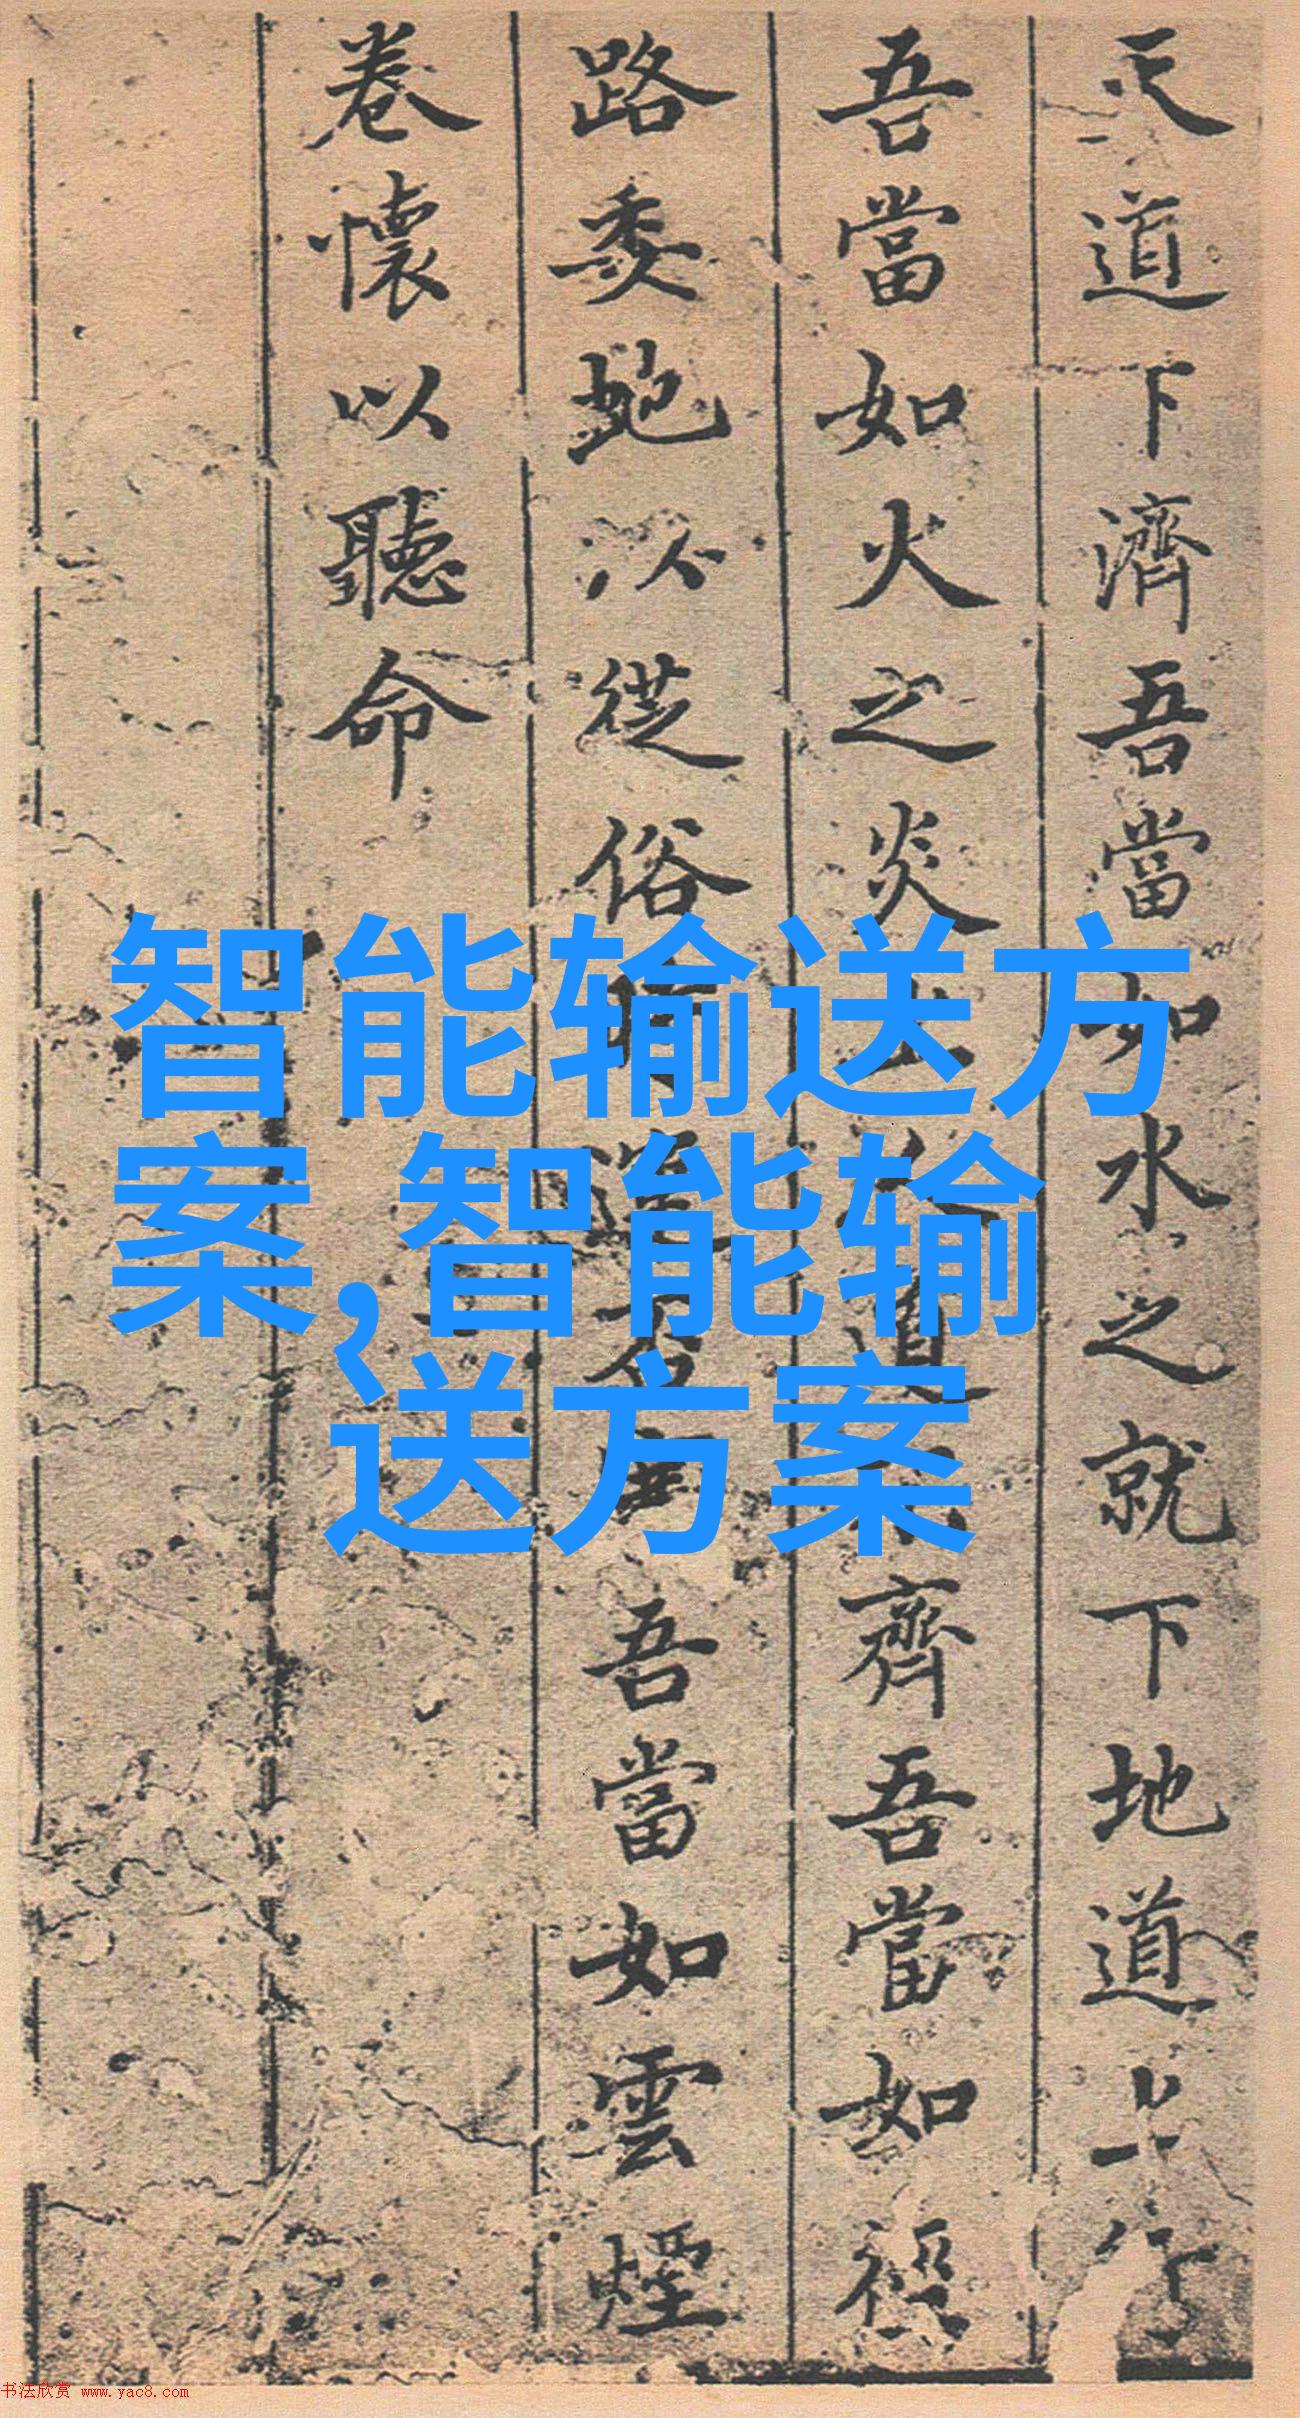 天道下濟吾當如水之就下地道上行
吾當如火之炎上人道不齊吾當如
路委蛇以從俗時
吾當如雲煙
卷懷以聽命
智能输送方
案,智能输
送方案
书法欣赏 www.yac8.com